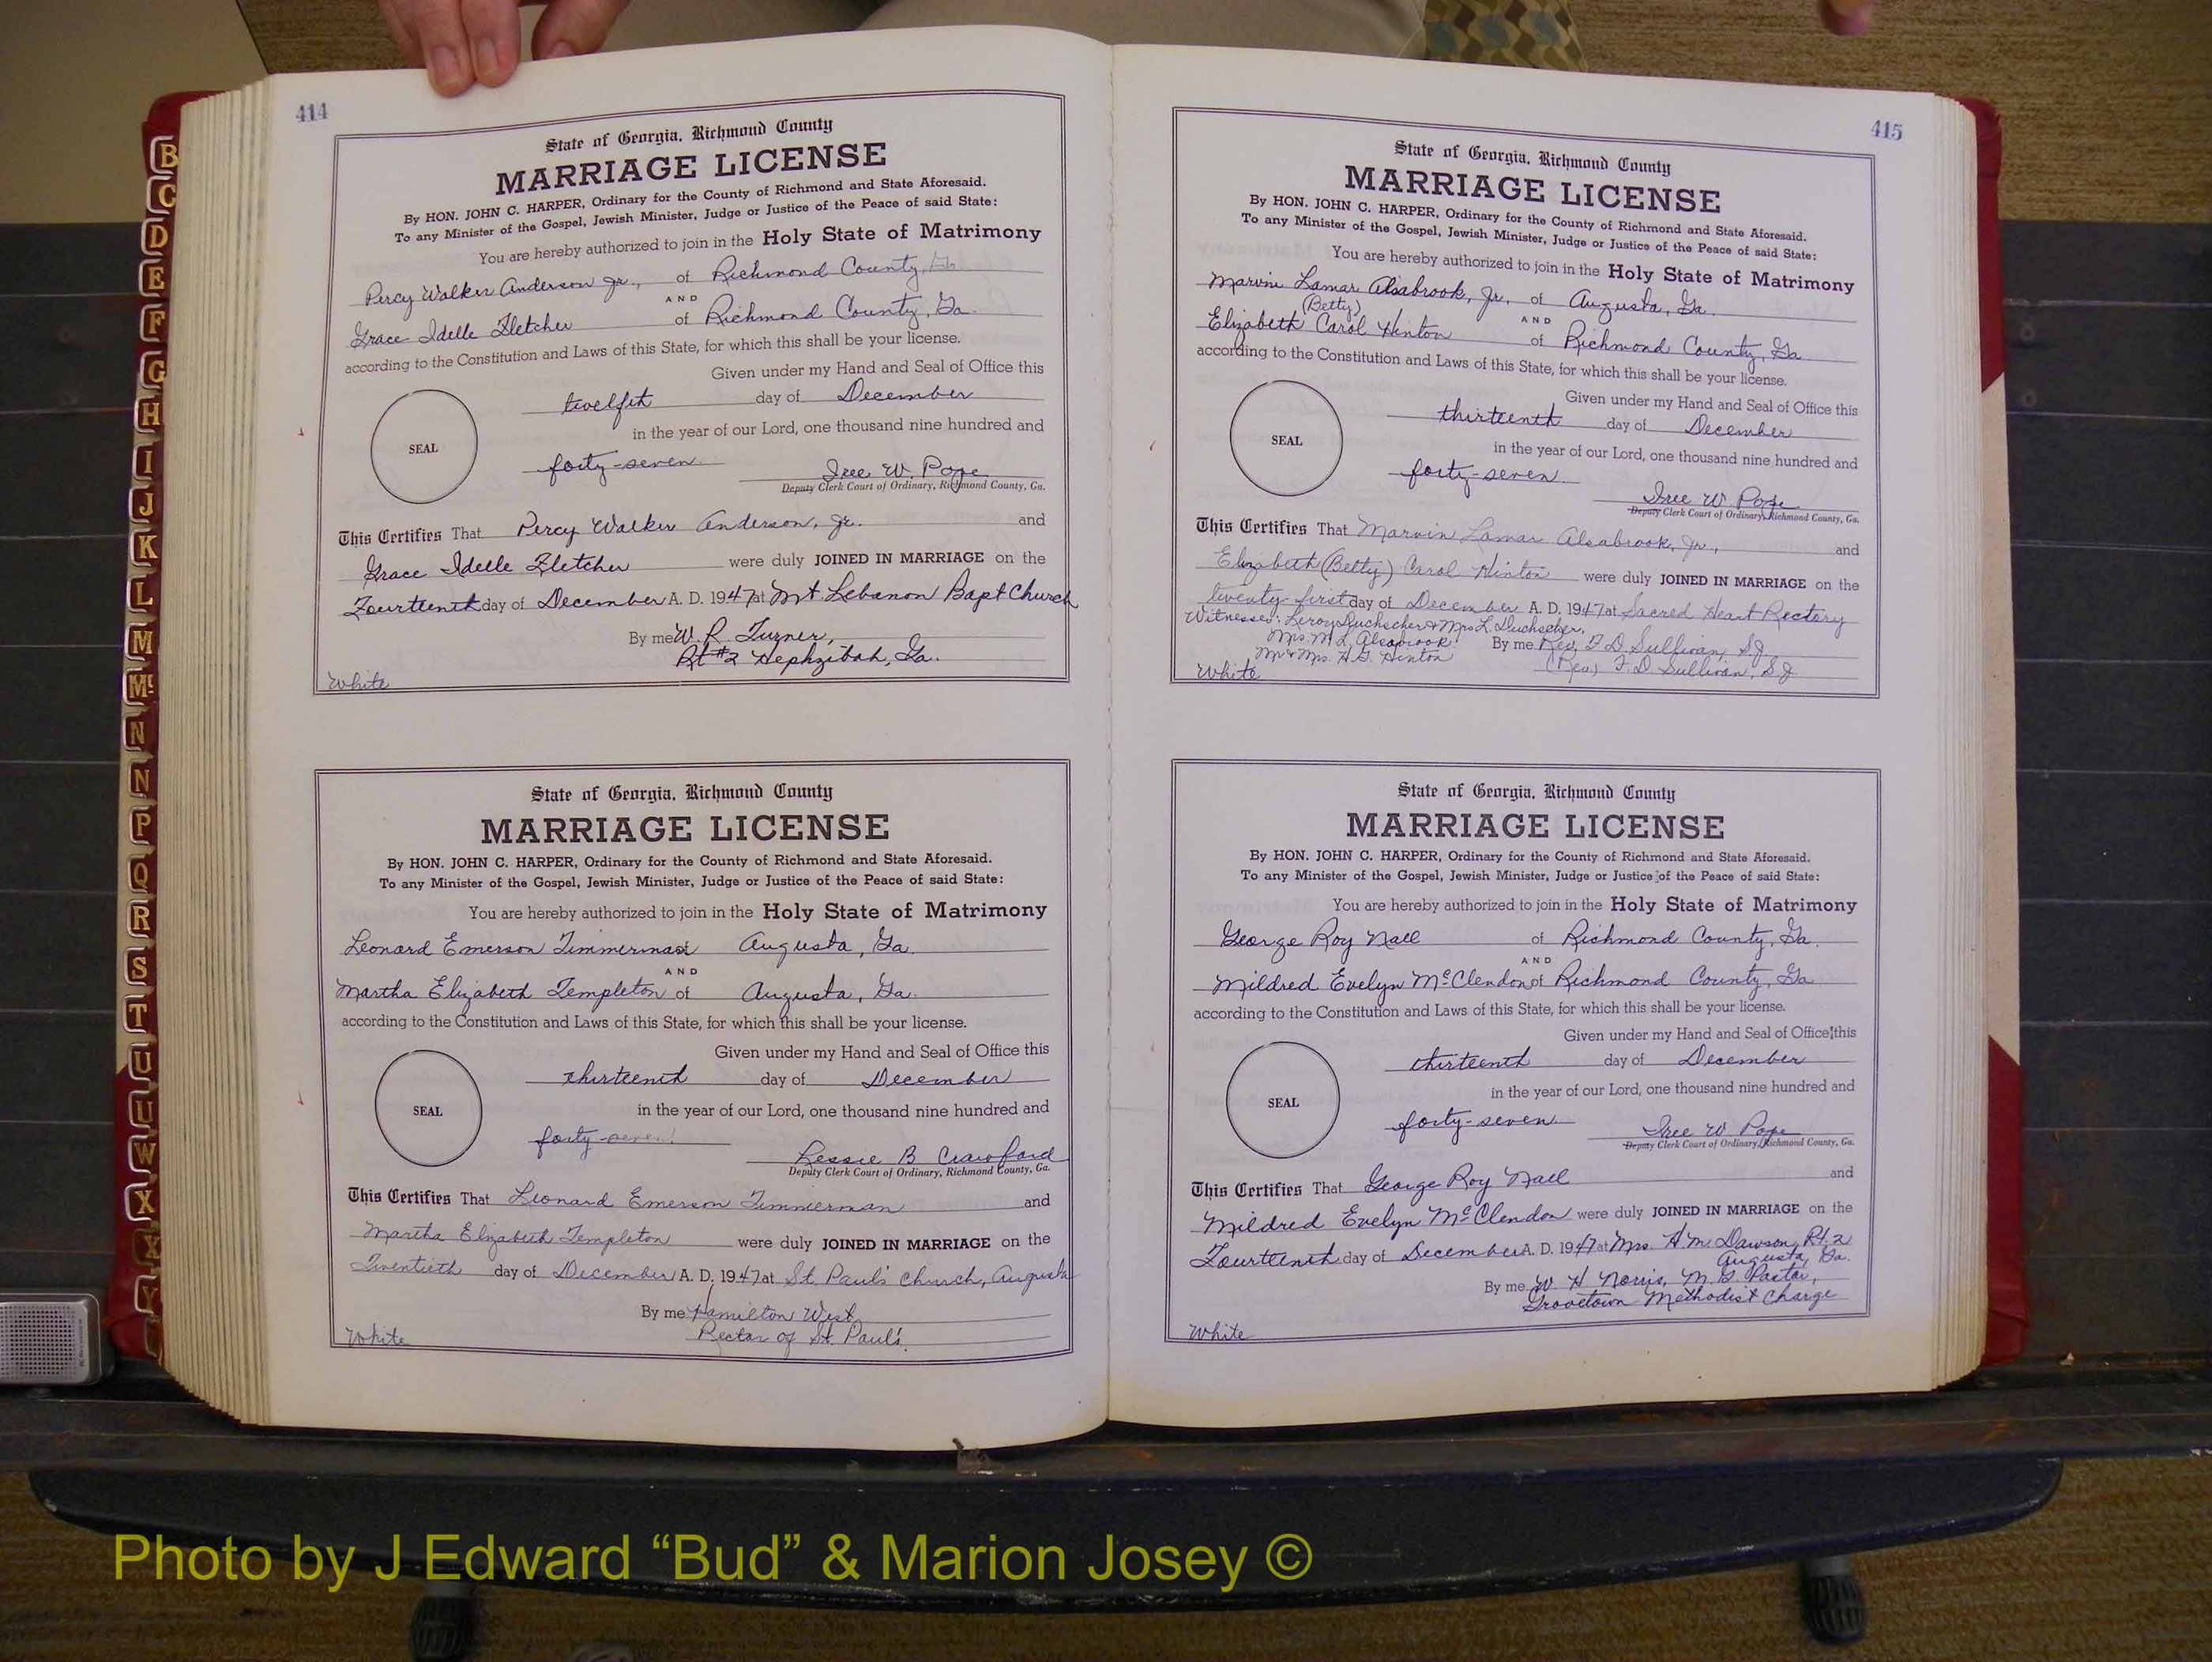 414
State of Georgia, Richmond County
MARRIAGE LICENSE
By HON. JOHN C. HARPER, Ordinary for the County of Richmond and State Aforesaid.
To any Minister of the Gospel, Jewish Minister, Judge or Justice of the Peace of said State:
You are hereby authorized to join in the Holy State of Matrimony
Percy Walker Anderson Jr., of Richmond County, Ga
AND
Grace Idelle Fletcher of Richmond County, Ga.
according to the Constitution and Laws of this State, for which this shall be your license.
Given under my Hand and Seal of Office this
twelfth day of December
SEAL
in the year of our Lord, one thousand nine hundred and
forty-seven
Iree W. Pope
Deputy Clerk Court of Ordinary, Richmond County, Ga.
This Certifies That Percy Walker Anderson, Jr. and
Grace Idelle Fletcher were duly JOINED IN MARRIAGE on the
Fourteenth day of December A. D. 1947 at Mt. Lebanon Bapt Church
By me W. R. Turner,
Rt #2 Hephzibah, Ga.
White
State of Georgia, Richmond County
MARRIAGE LICENSE
By HON. JOHN C. HARPER, Ordinary for the County of Richmond and State Aforesaid.
To any Minister of the Gospel, Jewish Minister, Judge or Justice of the Peace of said State:
You are hereby authorized to join in the Holy State of Matrimony
Leonard Emerson Timmerman of Augusta, Ga.
AND
Martha Elizabeth Templeton of Augusta, Ga.
according to the Constitution and Laws of this State, for which this shall be your license.
Given under my Hand and Seal of Office this
thirteenth day of December
SEAL
in the year of our Lord, one thousand nine hundred and
forty-seven
Bessie B Crawford
Deputy Clerk Court of Ordinary, Richmond County, Ga.
This Certifies That Leonard Emerson Timmerman and
Martha Elizabeth Templeton were duly JOINED IN MARRIAGE on the
Twentieth day of December A. D. 1947 at St. Paul's Church, Augusta
By me Hamilton West
Rector of St. Paul's.
White
415
State of Georgia, Richmond County
MARRIAGE LICENSE
By HON. JOHN C. HARPER, Ordinary for the County of Richmond and State Aforesaid.
To any Minister of the Gospel, Jewish Minister, Judge or Justice of the Peace of said State:
You are hereby authorized to join in the Holy State of Matrimony
Marvin Lamar Alsabrook, Jr. of Augusta, Ga.
(Betty)
AND
Elizabeth Carol Hinton of Richmond County, Ga
according to the Constitution and Laws of this State, for which this shall be your license.
Given under my Hand and Seal of Office this
thirteenth day of December
SEAL
in the year of our Lord, one thousand nine hundred and
forty-seven
Iree W. Pope
Deputy Clerk Court of Ordinary, Richmond County, Ga.
This Certifies That Marvin Lamar Alsabrook, Jr., and
Elizabeth (Betty) Carol Hinton were duly JOINED IN MARRIAGE on the
twenty-first day of December A. D. 1947 at Sacred Heart Rectory
Witnesses: Leroy Duchscher & Mrs L. Duchscher,
Mrs. M. L. Alsabrook
By me Rev, F D Sullivan, SJ
Mr & Mrs. H. G. Hinton
(Rev) F. D Sullivan, SJ
White
State of Georgia, Richmond County
MARRIAGE LICENSE
By HON. JOHN C. HARPER, Ordinary for the County of Richmond and State Aforesaid.
To any Minister of the Gospel, Jewish Minister, Judge or Justice of the Peace of said State:
You are hereby authorized to join in the Holy State of Matrimony
George Roy Nall of Richmond County, Ga.
AND
Mildred Evelyn McClendon of Richmond County, Ga
according to the Constitution and Laws of this State, for which this shall be your license.
Given under my Hand and Seal of Office this
thirteenth day of December
SEAL
in the year of our Lord, one thousand nine hundred and
forty-seven
Iree W Pope
Deputy Clerk Court of Ordinary, Richmond County, Ga.
This Certifies That George Roy Nall and
Mildred Evelyn McClendon were duly JOINED IN MARRIAGE on the
Fourteenth day of December A. D. 1947 at Mrs. H. M. Dawson, Rt. 2
Augusta, Ga.
By me W. H Norris, M. G. Pastor,
Grovetown Methodist Charge
White
B
C
D
E
F
G
H
I
J
K
L
M
Mc
N
N
P
Q
R
S
T
U
U
W
X
X
Y
Photo by J Edward “Bud” & Marion Josey ©